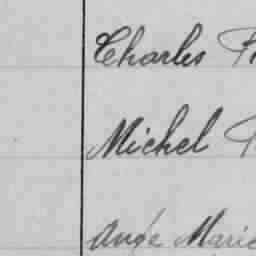 Charles
Michel
Ange Marie